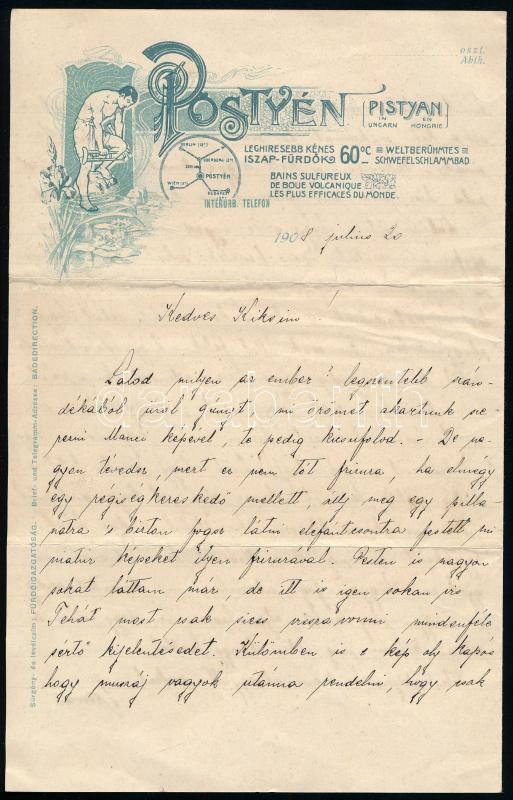 oszt.
Abth.
PÖSTYÉN
PISTYAN
IN UNGARN EN HONGRIE
LEGHIRESEBB KÉNES
ISZAP-FÜRDŐK 60°C
WELTBERÜHMTES
SCHWEFELSCHLAMMBAD
BAINS SULFUREUX
DE BOUE VOLCANIQUE
LES PLUS EFFICACES DU MONDE.
PÖSTYÉN
INTERURB. TELEFON
1908 julius 20
Kedves Kiksim!
Látod milyen az ember? legszentebb szán-
dékából űzöl gúnyt, mi örömet akartunk sze-
rezni Manci képével, te pedig kicsufolod. - De na-
gyon tévedsz, mert ez nem tót frizura, ha elmégy
egy régiségkereskedő mellett, állj meg egy pilla-
natra s birton fogsz látni elefántcsontra festett mi
niatur képeket ilyen frizurával. Pesten is nagyon
sokat láttam már, de itt is igen sokan
Tehát most csak siess visszavonni mindenféle
sértő kijelentésedet. Különben is e kép oly kapós
hogy muszáj vagyok utánna rendelni, hogy csak
Sürgöny- és levélczím: FÜRDŐIGAZGATÓSÁG. Brief- und Telegramm-Adresse: BADEDIRECTION.
darabanth